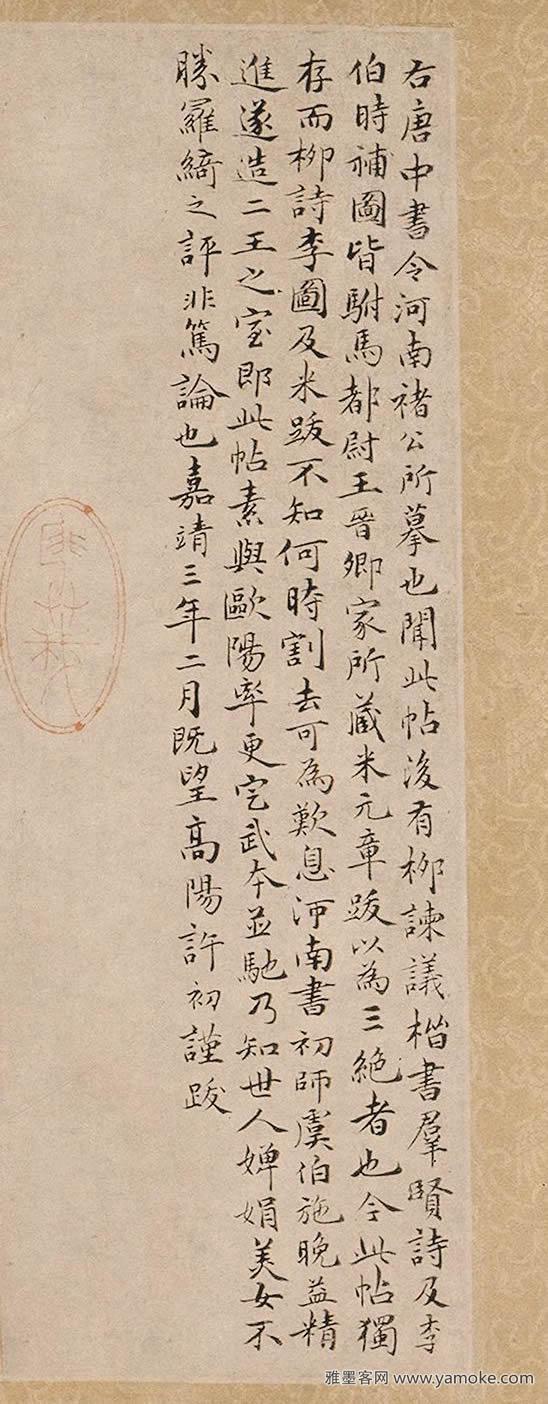 右唐中書令河南褚公所摹也聞此帖後有柳諫議楷書羣賢詩及李
伯時補圖皆駙馬都尉王晉卿家所藏米元章跋以為三絶者也今此帖獨
存而柳詩李圖及米跋不知何時割去可為歎息河南書初師虞伯施晚益精
進遂造二王之室即此帖素與歐陽率更定武本並馳乃知世人嬋娟美女不
勝羅綺之評非篤論也嘉靖三年二月既望高陽許初謹跋
雅墨客网 www.yamoke.com